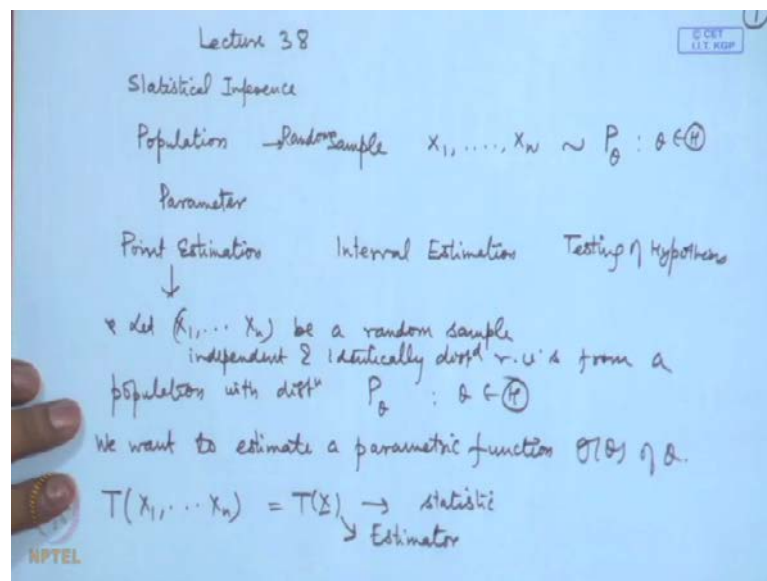 1
Lecture 38
© CET
I.I.T. KGP
Statistical Inference
Population → Random Sample X₁, ...., X_N ~ P_θ : θ ∈ Ⓗ
Parameter
Point Estimation Interval Estimation Testing of Hypothesis
↓
Let (X₁, ... Xₙ) be a random sample
independent & identically distd r.v.'s from a
population with distⁿ P_θ : θ ∈ Ⓗ
We want to estimate a parametric function (θ) of θ.
T(X₁, ... Xₙ) = T(X) → statistic
↘ Estimator
NPTEL